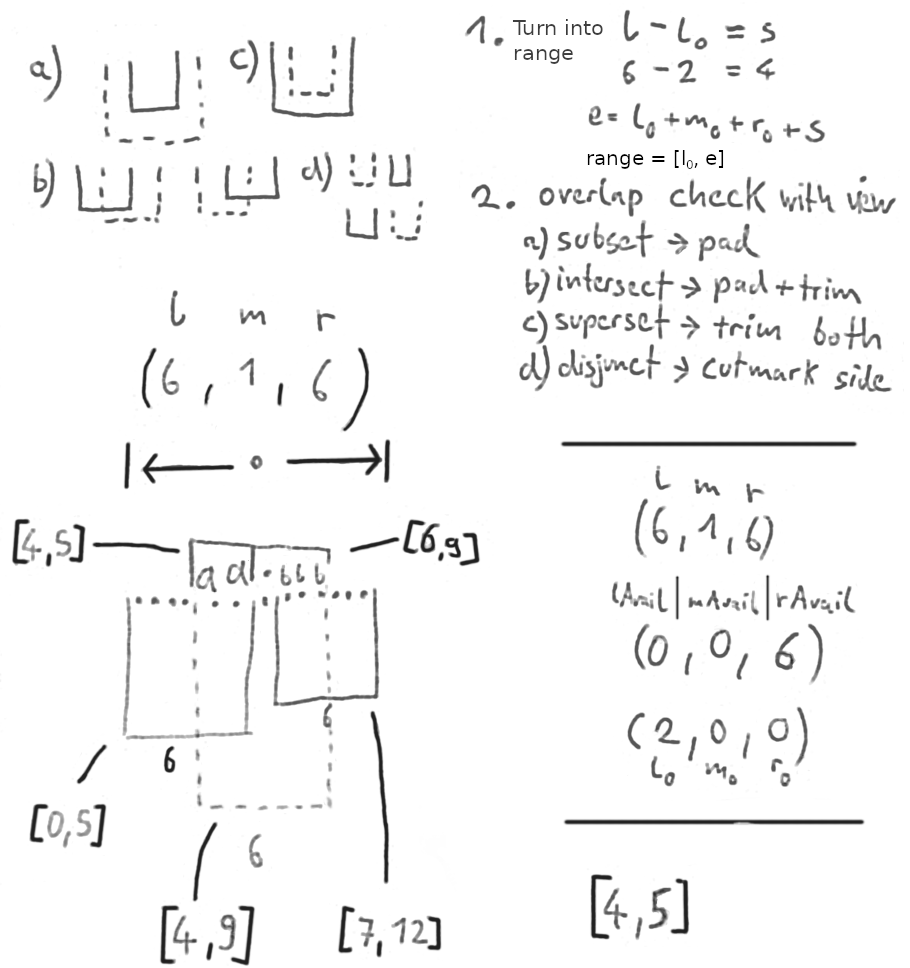 a)
c)
b)
d)
l m r
(6, 1, 6)
o
[4,5]
[6,9]
a a . b b b
6
6
[0,5]
6
[4,9]
[7,12]
1. Turn into range
l - l₀ = s
6 - 2 = 4
e = l₀ + m₀ + r₀ + s
range = [l₀, e]
2. overlap check with view
a) subset → pad
b) intersect → pad + trim
c) superset → trim both
d) disjunct → cutmark side
l m r
(6, 1, 6)
lAvail | mAvail | rAvail
(0, 0, 6)
(2, 0, 0)
l₀ m₀ r₀
[4,5]